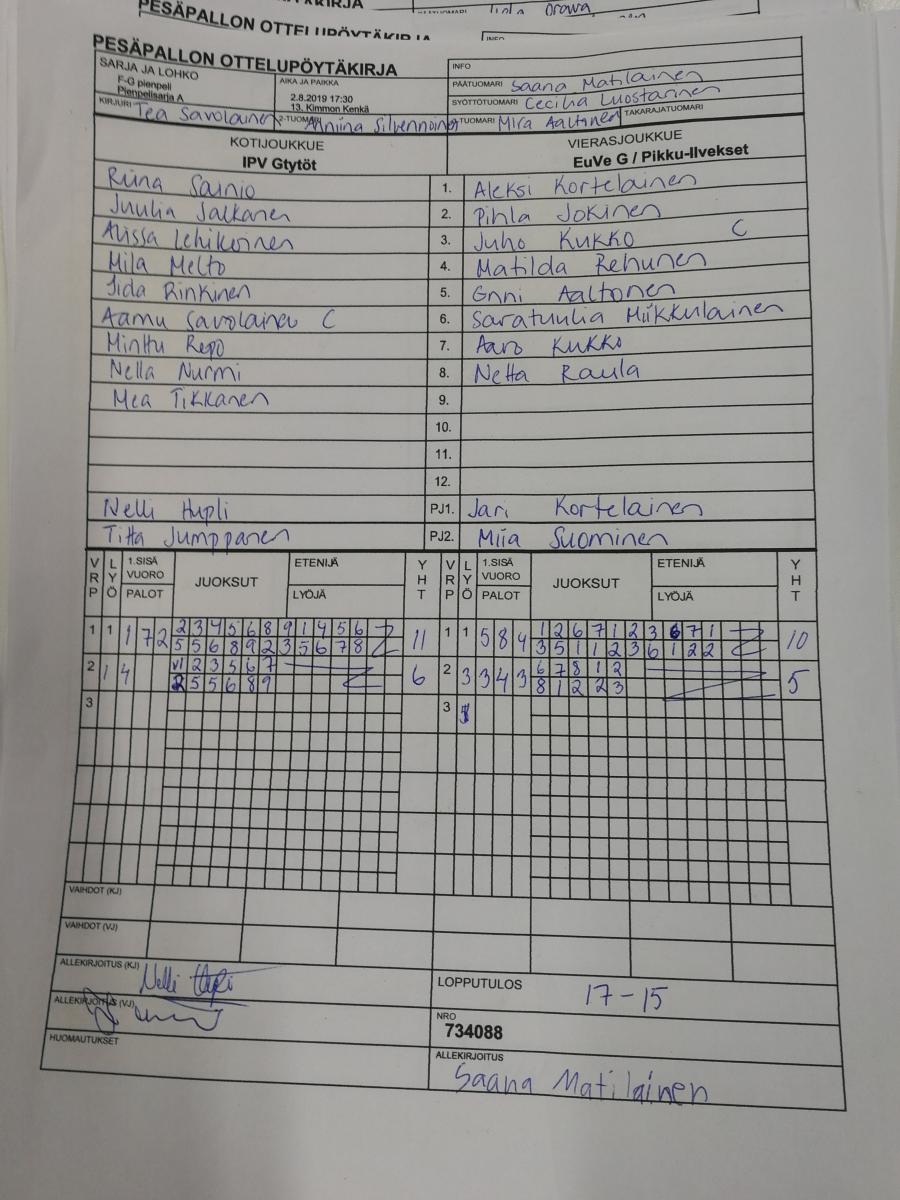 PESÄPALLON OTTELUPÖYTÄKIRJA
PESÄPALLON OTTELUPÖYTÄKIRJA
SARJA JA LOHKO
F-G pienpeli
Pienpelisarja A
AIKA JA PAIKKA
2.8.2019 17:30
13. Kimmon Kenkä
INFO
PÄÄTUOMARI Saana Matilainen
SYÖTTÖTUOMARI Cecilia Luostarinen
KIRJURI Tea Savolainen 2-TUOMARI Anniina Silvennoinen TUOMARI Mira Aaltonen TAKARAJATUOMARI
KOTIJOUKKUE VIERASJOUKKUE
IPV Gtytöt EuVe G / Pikku-Ilvekset
Riina Sainio 1. Aleksi Kortelainen
Juulia Jalkanen 2. Pihla Jokinen
Alissa Lehikoinen 3. Juho Kukko C
Mila Melto 4. Matilda Rehunen
Iida Rinkinen 5. Enni Aaltonen
Aamu Savolainen C 6. Saratuulia Miikkulainen
Minttu Repo 7. Aaro Kukko
Nella Nurmi 8. Netta Raula
Mea Tikkanen 9.
10.
11.
12.
Nelli Hupli PJ1. Jari Kortelainen
Titta Jumppanen PJ2. Miia Suominen
VRP LYÖ 1.SISÄ VUORO PALOT JUOKSUT ETENIJÄ LYÖJÄ YHT VRP LYÖ 1.SISÄ VUORO PALOT JUOKSUT ETENIJÄ LYÖJÄ YHT
1 1 1 7 2 2 3 4 5 6 8 9 1 4 5 6 11 1 1 5 8 4 1 2 6 7 1 2 3 6 7 1 10
5 5 6 8 9 2 3 5 6 7 8 3 5 1 1 2 3 6 1 2 2
2 1 4 VI 2 3 5 6 7 6 2 3 3 4 3 6 7 8 1 2 5
2 5 5 6 8 9 8 1 2 2 3
3 3
VAIHDOT (KJ)
VAIHDOT (VJ)
ALLEKIRJOITUS (KJ) Nelli Hupli
LOPPUTULOS 17-15
ALLEKIRJOITUS (VJ)
NRO
734088
HUOMAUTUKSET
ALLEKIRJOITUS
Saana Matilainen